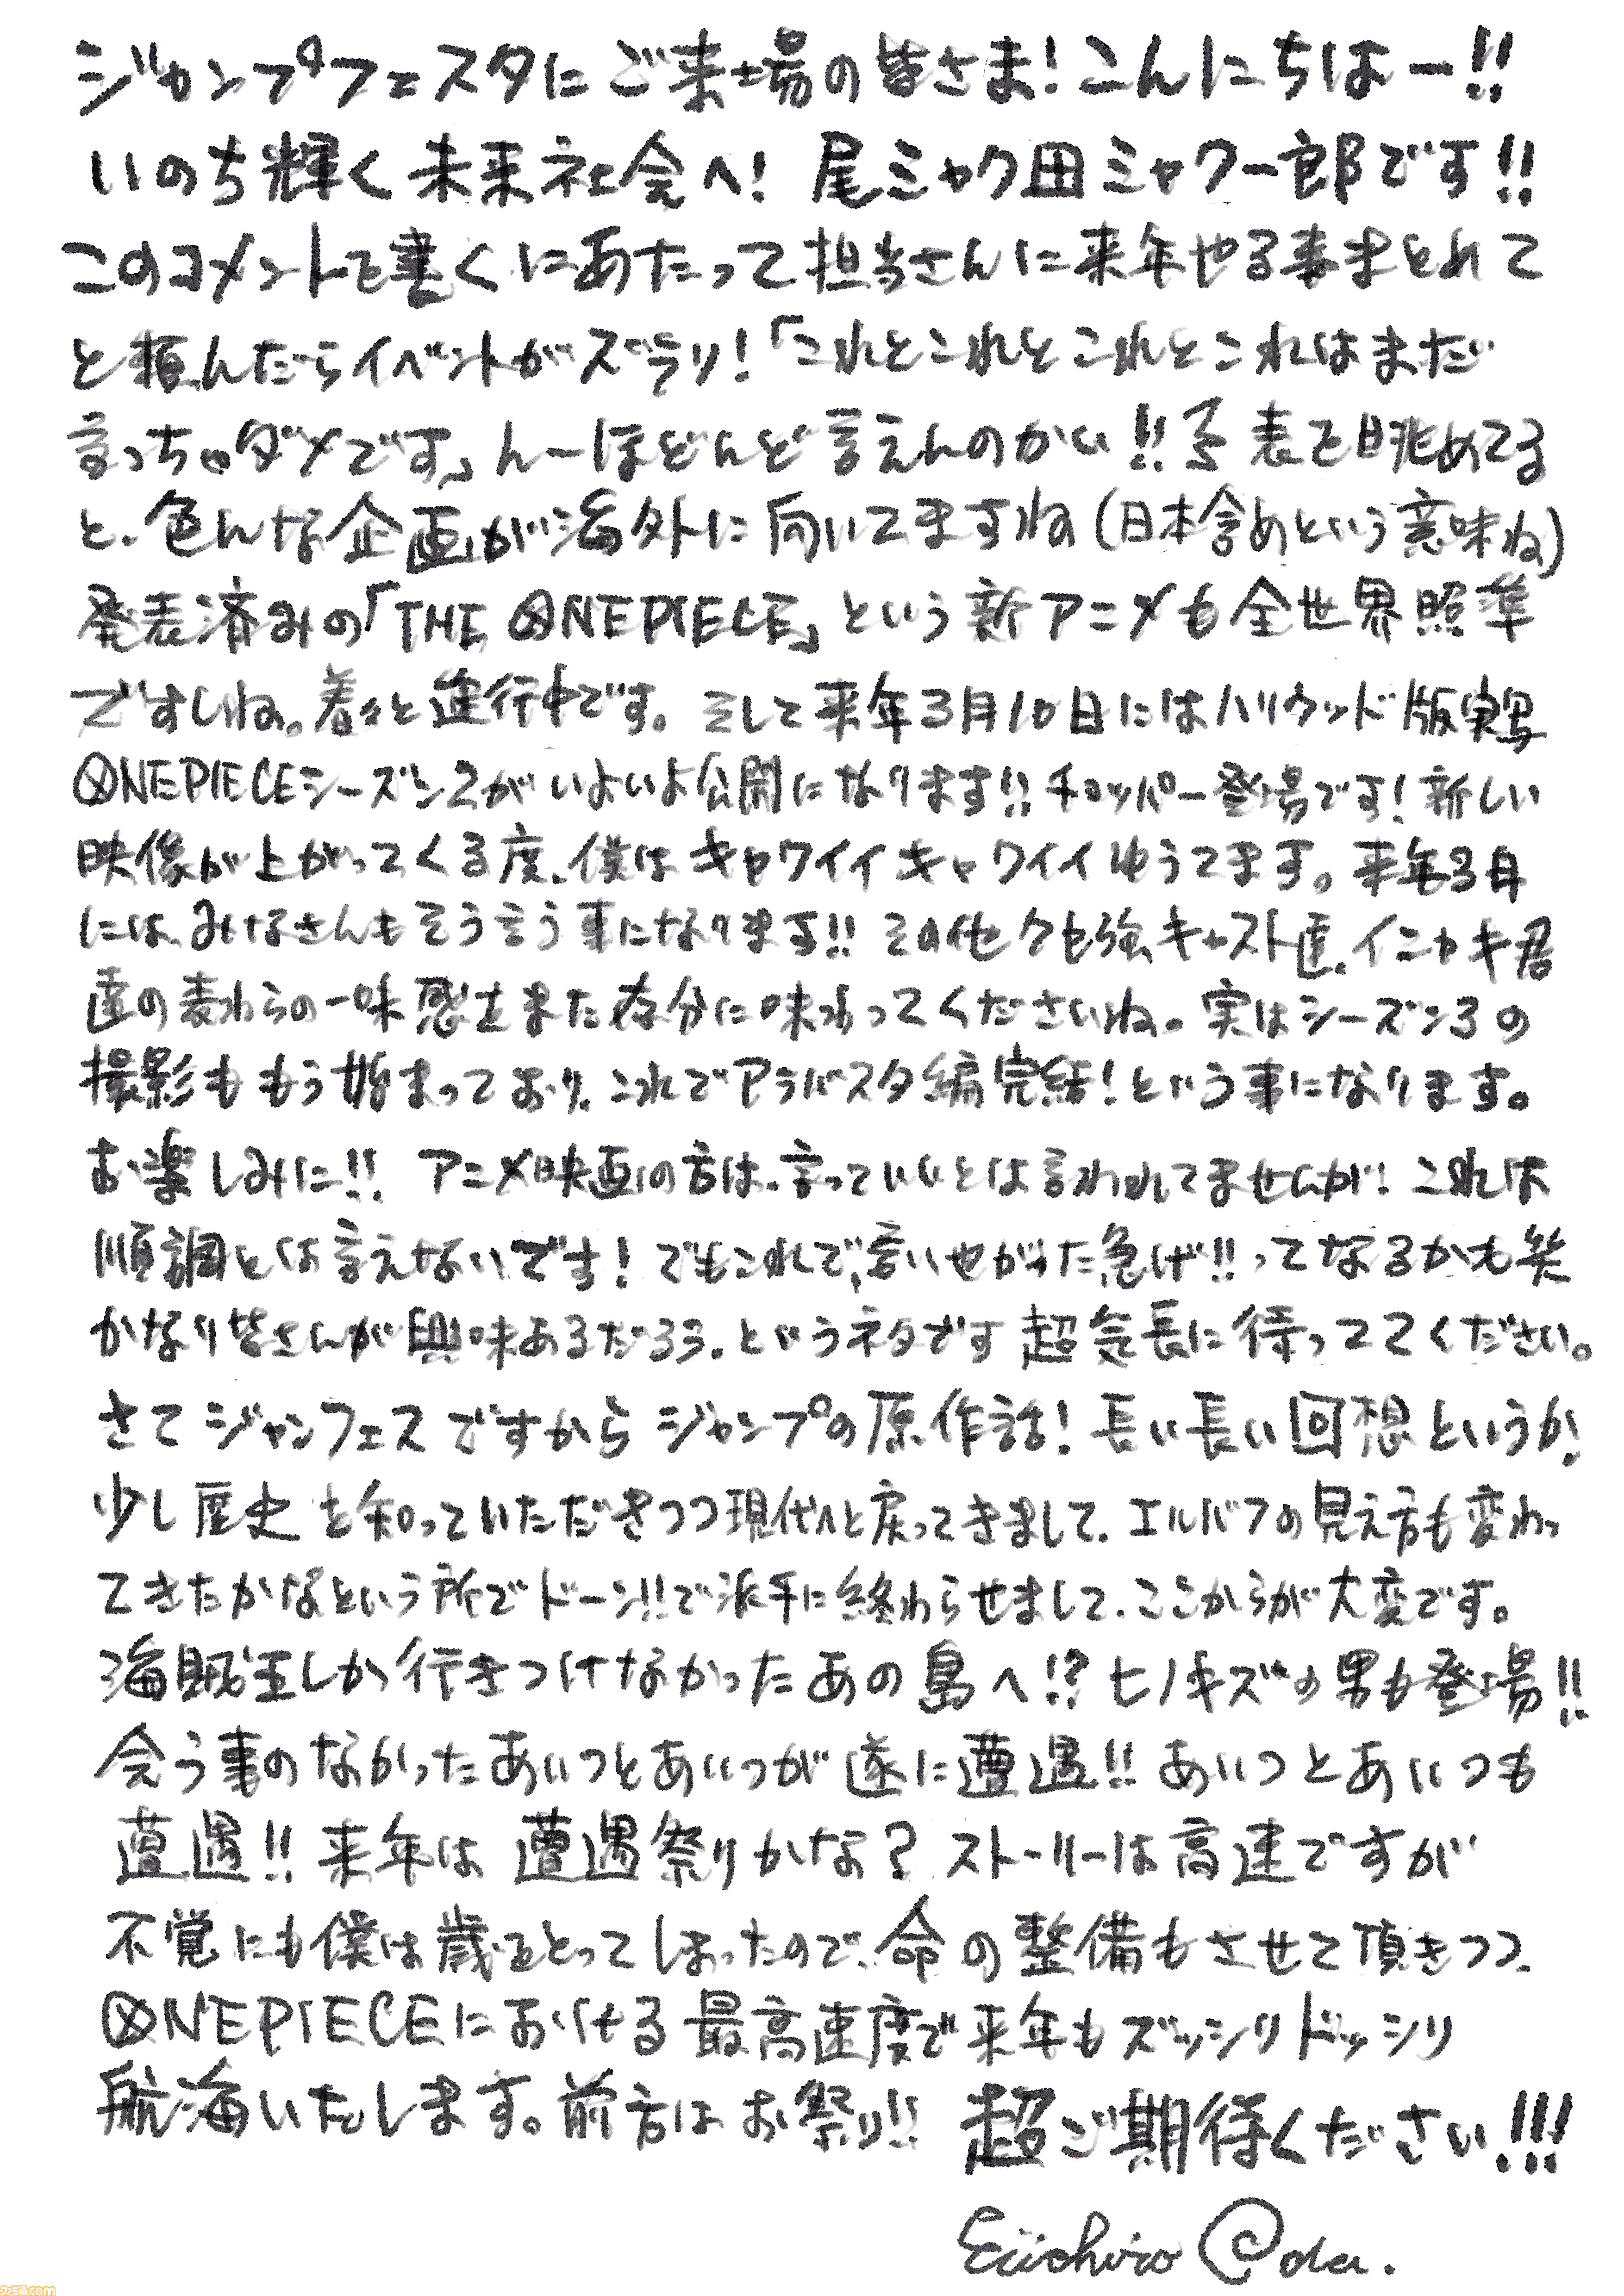 ジャンプフェスタにご来場の皆さま!こんにちはー!!
いのち輝く未来社会へ! 尾ミャク田ミャク一郎です!!
このコメントを書くにあたって担当さんに来年やる事まとめて
と頼んだらイベントがズラリ!「これとこれとこれとこれはまだ
言っちゃダメです」んーほどんど言えんのかい!!予表を眺めてる
と、色んな企画が海外に向いてますね(日本含めという意味ね)
発表済みの「THE ONE PIECE」という新アニメも全世界照準
ですしね。着々と進行中です。そして来年3月10日にはハリウッド版実写
ONE PIECEシーズン2がいよいよ公開になります!!チョッパー登場です!新しい
映像が上がってくる度、僕はキャワイイキャワイイゆうてます。来年3月
には、みなさんもそう言う事になります!!その他クセ強キャスト達、イニャキ君
達の麦わらの一味感をまた存分に味わってくださいね。実はシーズン3の
撮影ももう始まっており、これでアラバスタ編完結!という事になります。
お楽しみに!! アニメ映画の方は、言っていいとは言われてませんが!これは
順調とは言えないです!でもこれで、言いやがった急げ!!ってなるかも笑
かなり皆さんが興味あるだろう、というネタです 超気長に待っててください。
さてジャンフェスですからジャンプの原作話!長い長い回想というか!
少し歴史を知っていただきつつ現代へと戻ってきまして、エルバフの見え方も変わっ
てきたかなという所でドーン!!で派手に終わらせまして、ここからが大変です。
海賊王しか行きつけなかったあの島へ!?ヒノキズの男も登場!!
会う事のなかったあいつとあいつが遂に遭遇!!あいつとあいつも
遭遇!!来年は遭遇祭りかな? ストーリーは高速ですが
不覚にも僕は歳をとってしまったので、命の整備もさせて頂きつつ、
ONE PIECEにおける最高速度で来年もズッシリドッシリ
航海いたします。前方はお祭り!! 超ご期待ください!!!
Eiichiro Oda.
ファミ通.com